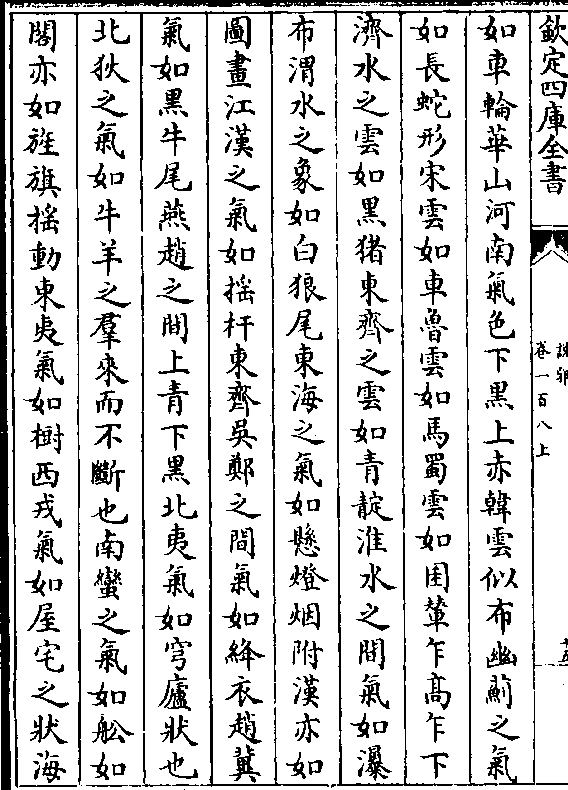 欽定四庫全書
卷一百八上
如車輪華山河南氣色下黑上赤韓雲似布幽薊之氣
如長蛇形宋雲如車魯雲如馬蜀雲如囷輂乍髙乍下
濟水之雲如黑猪東齊之雲如青靛淮水之間氣如瀑
布渭水之象如白狼尾東海之氣如懸燈烟附漢亦如
圖畫江漢之氣如揺杆東齊吳鄭之間氣如絳衣趙冀
氣如黑牛尾燕趙之間上青下黑北夷氣如穹廬狀也
北狄之氣如牛羊之羣來而不斷也南蠻之氣如舩如
閣亦如旌旗揺動東夷氣如樹西戎氣如屋宅之狀海